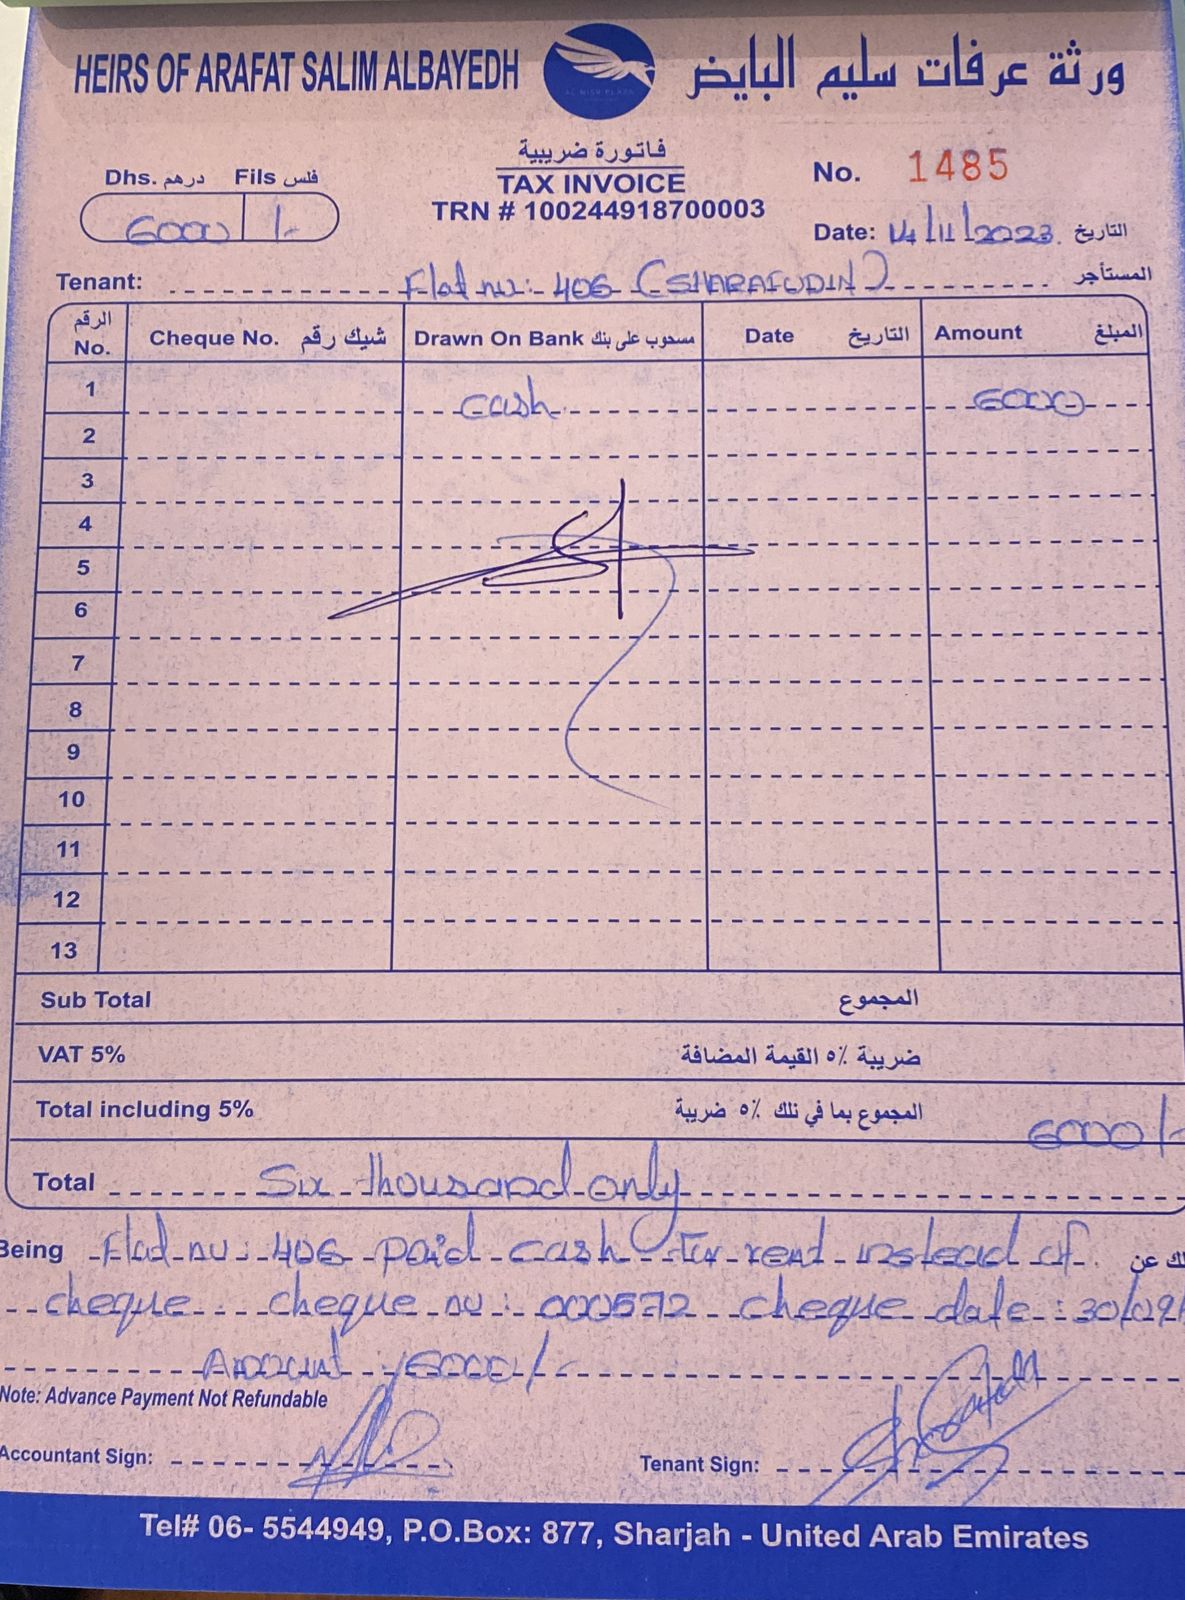 HEIRS OF ARAFAT SALIM ALBAYEDH ورثة عرفات سليم البايض
AL NISR PLAZA
فاتورة ضريبية
TAX INVOICE
TRN # 100244918700003
Dhs. درهم Fils فلس
6000 /-
No. 1485
Date: 14/11/2023 التاريخ
Tenant: Flat no: 406 (SHARAFUDIN) المستأجر
الرقم No. Cheque No. شيك رقم Drawn On Bank مسحوب على بنك Date التاريخ Amount المبلغ
1 cash 6000
2
3
4
5
6
7
8
9
10
11
12
13
Sub Total المجموع
VAT 5% ضريبة ٥٪ القيمة المضافة
Total including 5% المجموع بما في ذلك ٥٪ ضريبة 6000/-
Total Six thousand only
Being Flat no: 406 paid cash for rent instead of عن
cheque cheque no: 000572 cheque date: 30/09/
Amount: 6000/-
Note: Advance Payment Not Refundable
Accountant Sign: Tenant Sign:
Tel# 06- 5544949, P.O.Box: 877, Sharjah - United Arab Emirates